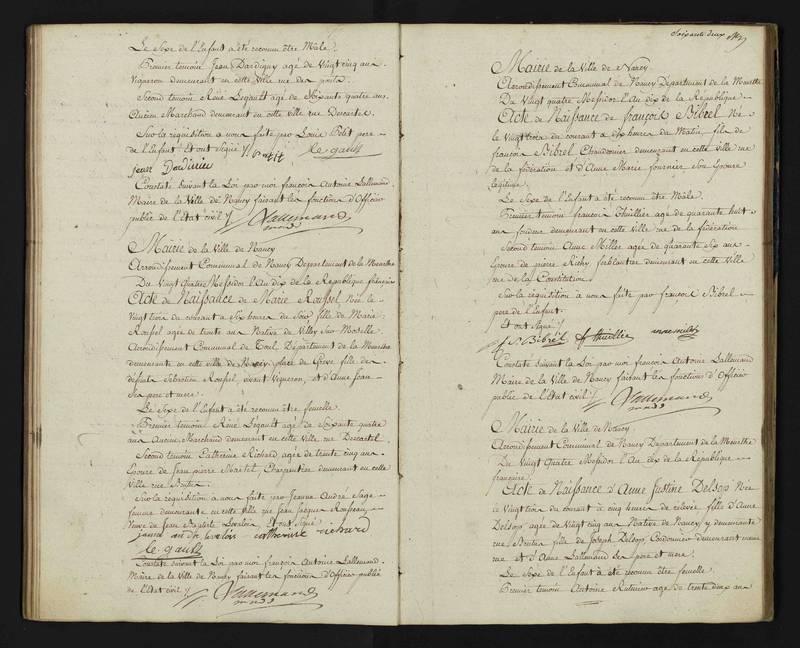 Le Sexe de l'Enfant a été reconnu être Mâle.
Premier temoin Jean Dardigny agé de Vingt cinq ans
Vigneron demeurant en cette Ville rue des ponts.
Second temoin René Legault agé de Soixante quatre ans
Ancien Marchand demeurant en cette ville rue Descartes.
Sur la réquisition a nous faite par Louis Petit pere
de l'Enfant Et ont signé
le gault
Constaté suivant la Loi par moi françois Antoine Lallemand
Maire de la Ville de Nancy faisant les fonctions d'Officier
public de l'Etat civil
Lallemand
Mairie de la Ville de Nancy
Arrondissement Communal de Nancy Departement de la Meurthe
Du Vingt quatre Messidor l'An dix de la République française
Acte de Naissance de Marie Roussel Née le
Vingt trois du courant a Six heures du Soir fille de Marie
Roussel agée de trente ans Native de Villey Sur Moselle
Arrondissement Communal de Toul, Département de la Meurthe
demeurante en cette ville de Nancy, place de Greve fille des
défunts Sebastien Roussel, vivant Vigneron, et d'Anne Jean
Ses pere et mere.
Le Sexe de l'Enfant a été reconnu être femelle.
Premier temoin René Legault agé de Soixante quatre
ans Ancien Marchand demeurant en cette Ville rue Descartes.
Second temoin Catherine Richard agée de trente cinq ans
Epouse de Jean pierre Martel Charpentier demeurant en cette
Ville rue
Sur la réquisition a nous faite par Jeanne André Sage
femme demeurante en cette Ville rue Jean Jacques Rousseau
Veuve de Jean Baptiste Et ont Signé
catherine richard
le gault
Constaté suivant la Loi par moi françois Antoine Lallemand
Maire de la Ville de Nancy faisant les fonctions d'Officier public
de l'Etat civil
Lallemand
Soixante deux
Mairie de la Ville de Nancy
Arrondissement Communal de Nancy Departement de la Meurthe
Du Vingt quatre Messidor l'An dix de la République
Acte de Naissance de françois Bibrel Né
le Vingt trois du courant a dix heures du Matin, fils de
françois Bibrel Chaudronier demeurant en cette Ville rue
de la fédération et d'Anne Marie fournier Son Epouse
légitime.
Le Sexe de l'Enfant a été reconnu être Mâle.
Premier temoin francois Thuillier agé de quarante huit
ans fondeur demeurant en cette Ville rue de la fédération
Second temoin Anne Miller agée de quarante Six ans
Epouse de pierre Richy ferblantier demeurant en cette Ville
rue de la Constitution.
Sur la réquisition a nous faite par françois Bibrel
pere de l'Enfant.
Et ont Signé
Bibrel thuillier
Constaté suivant la Loi par moi françois Antoine Lallemand
Maire de la Ville de Nancy faisant les fonctions d'Officier
public de l'Etat civil
Lallemand
Mairie de la Ville de Nancy.
Arrondissement Communal de Nancy Departement de la Meurthe
Du Vingt Quatre Messidor l'An dix de la République
française.
Acte de Naissance d'Anne Justine Delsop Née
le Vingt trois du courant a cinq heures de relevée, fille d'Anne
Delsop agée de Vingt cinq ans Native de Nancy y demeurante
rue fille de Joseph Delsop Cordonnier demeurant même
rue et d'Anne Lallemand Ses pere et mere.
Le Sexe de l'Enfant a été reconnu être femelle
Premier temoin Antoine agé de trente deux ans